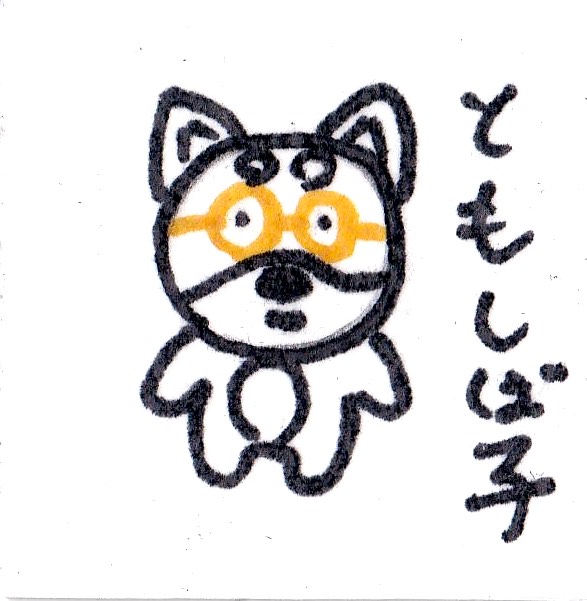 ともしば子